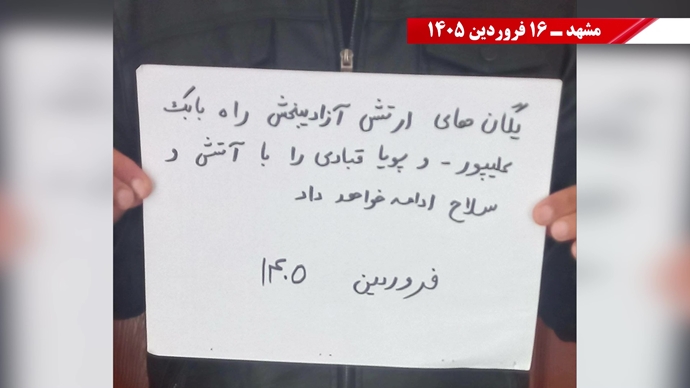 مشهد ــ ۱۶ فروردین ۱۴۰۵
یگان های ارتش آزادیبخش راه بابک
علیپور - و پویا قبادی را با آتش و
سلاح ادامه خواهد داد
فروردین ۱۴۰۵